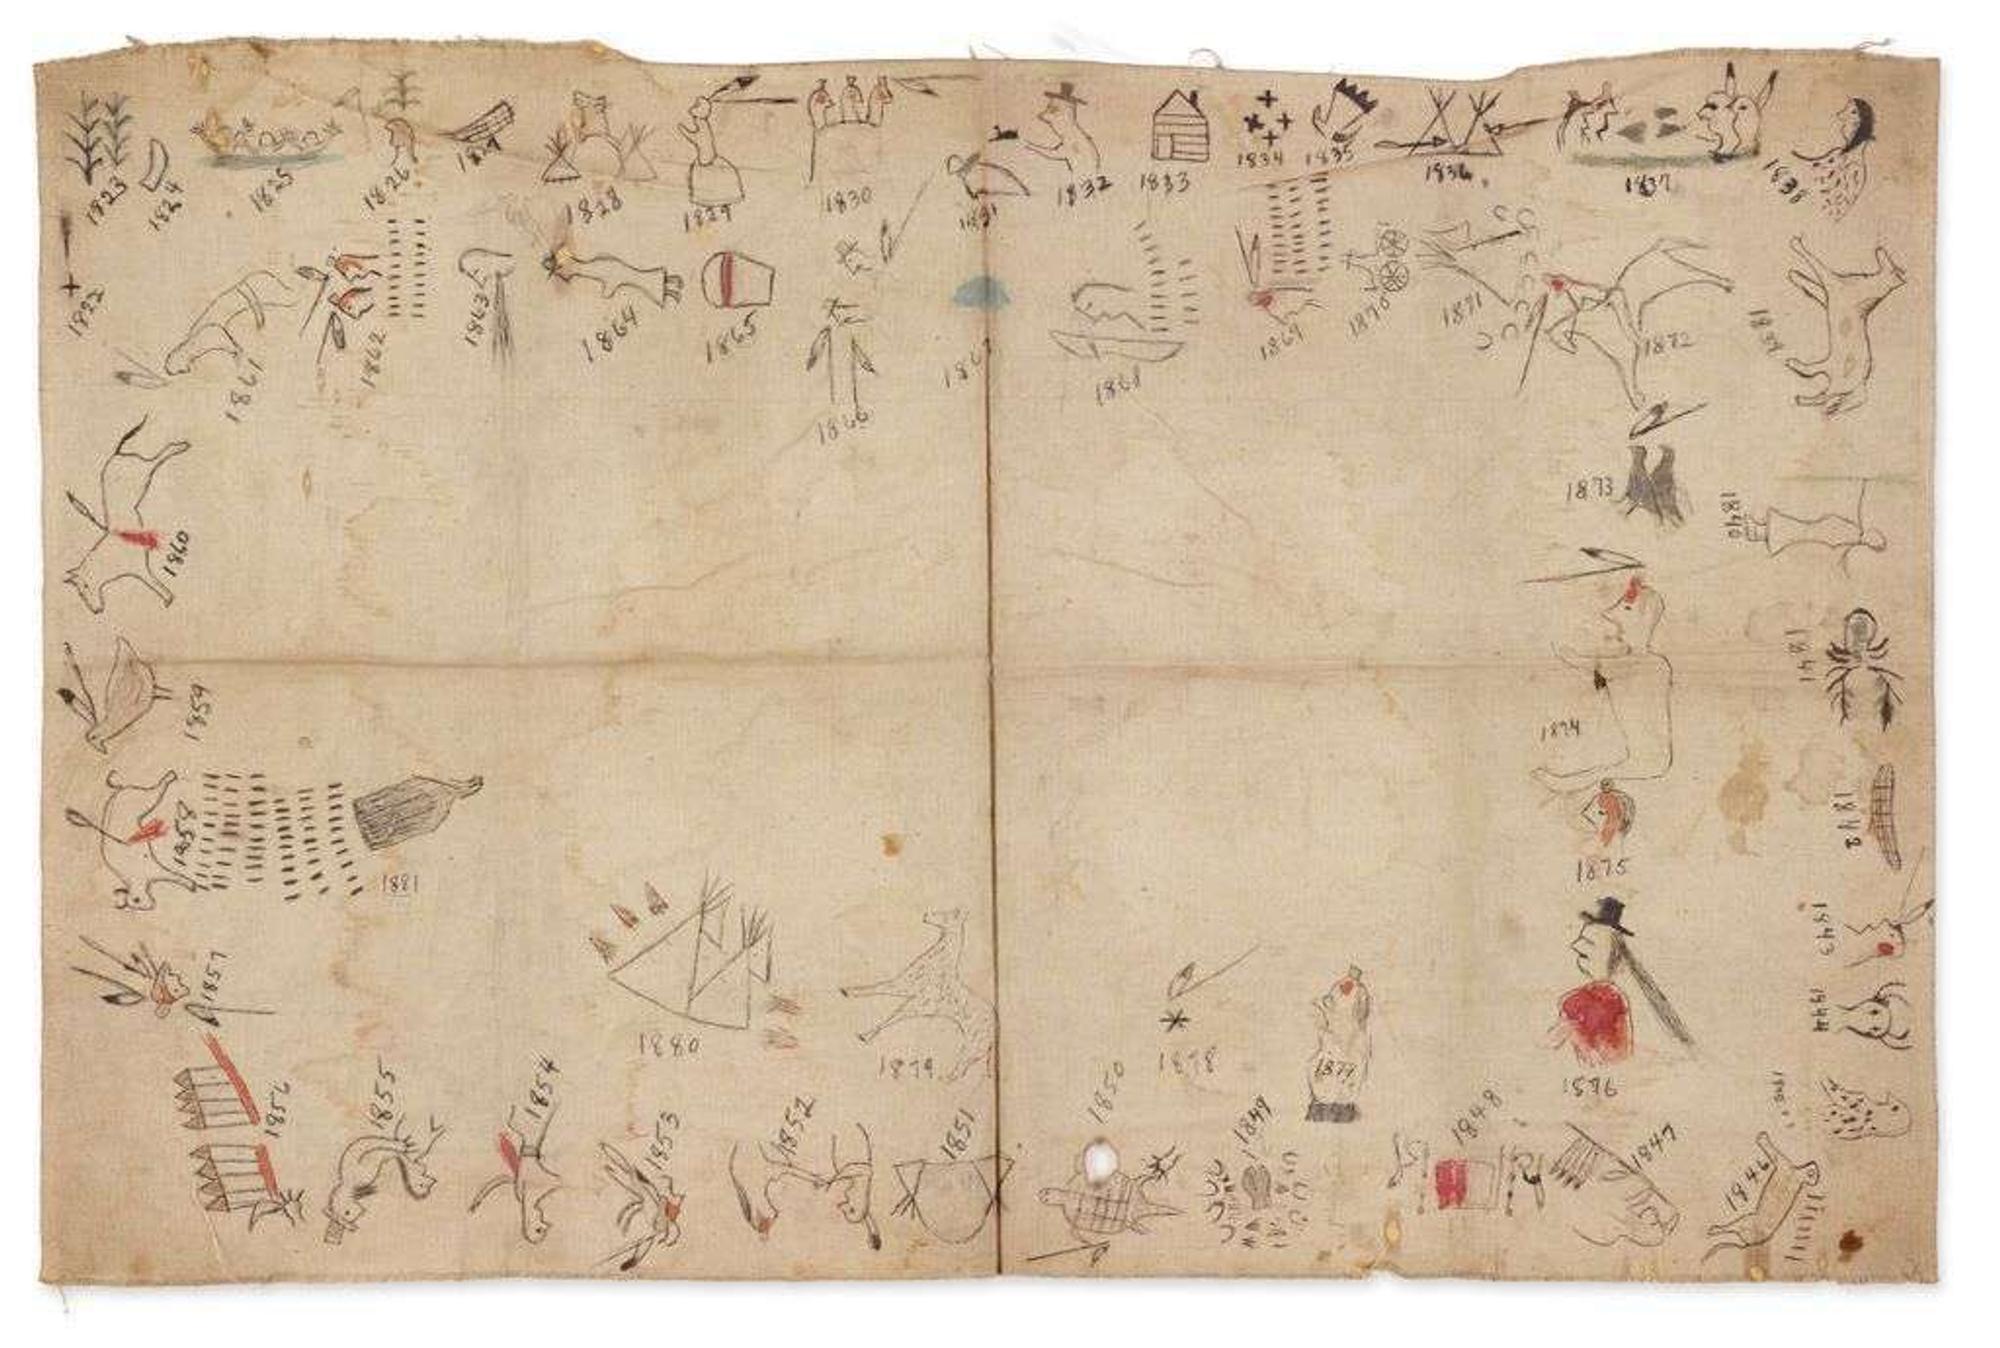 1822
1823
1824
1825
1826
1828
1829
1830
1831
1832
1833
1834
1835
1836
1837
1838
1840
1841
1842
1843
1844
1846
1847
1848
1849
1850
1851
1852
1853
1854
1855
1856
1857
1858
1859
1860
1861
1862
1863
1864
1865
1866
1867
1868
1869
1870
1871
1872
1873
1874
1875
1876
1877
1878
1879
1880
1881